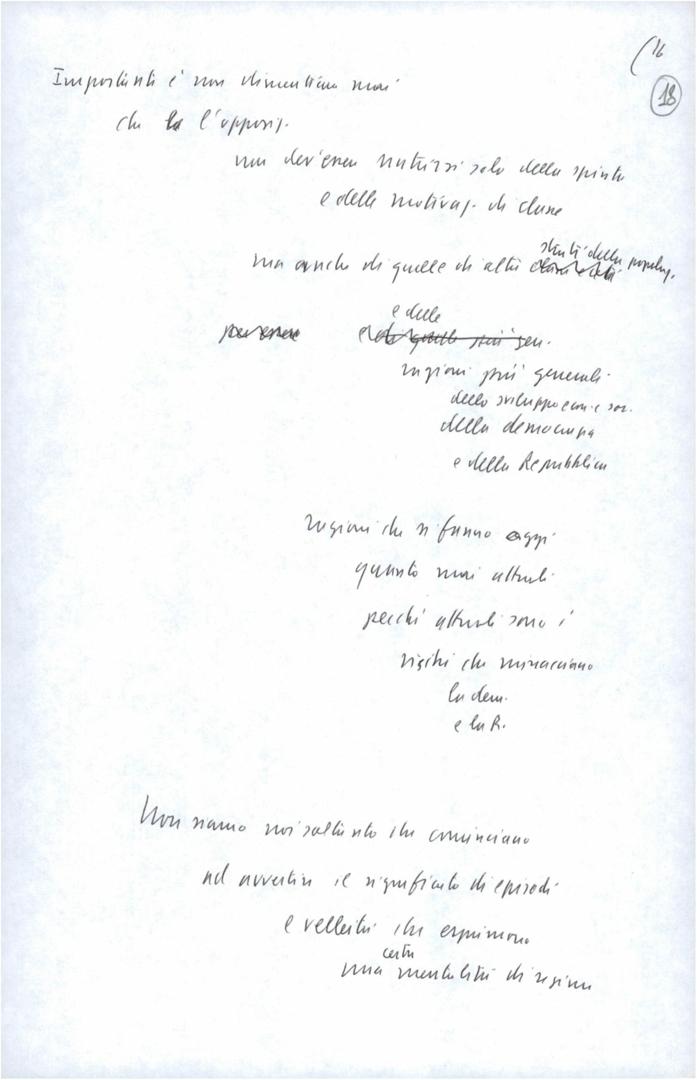 16
18
Importante è non dimenticare mai
che la l'opposiz.
non dev'essere nutrirsi solo della spinta
e delle motivaz. di classe
strati della popolaz.
ma anche di quelle di altri
e delle
per essere
e di quelle più gen.
ragioni più generali
dello sviluppo econ. e soc.
della democrazia
e della Repubblica
ragioni che si fanno oggi
quanto mai attuali
perché attuali sono i
rischi che minacciano
la dem.
e la R.
Non siamo noi soltanto che cominciano
ad avvertire il significato di episodi
e velleità che esprimono
certa
una mentalità di regime